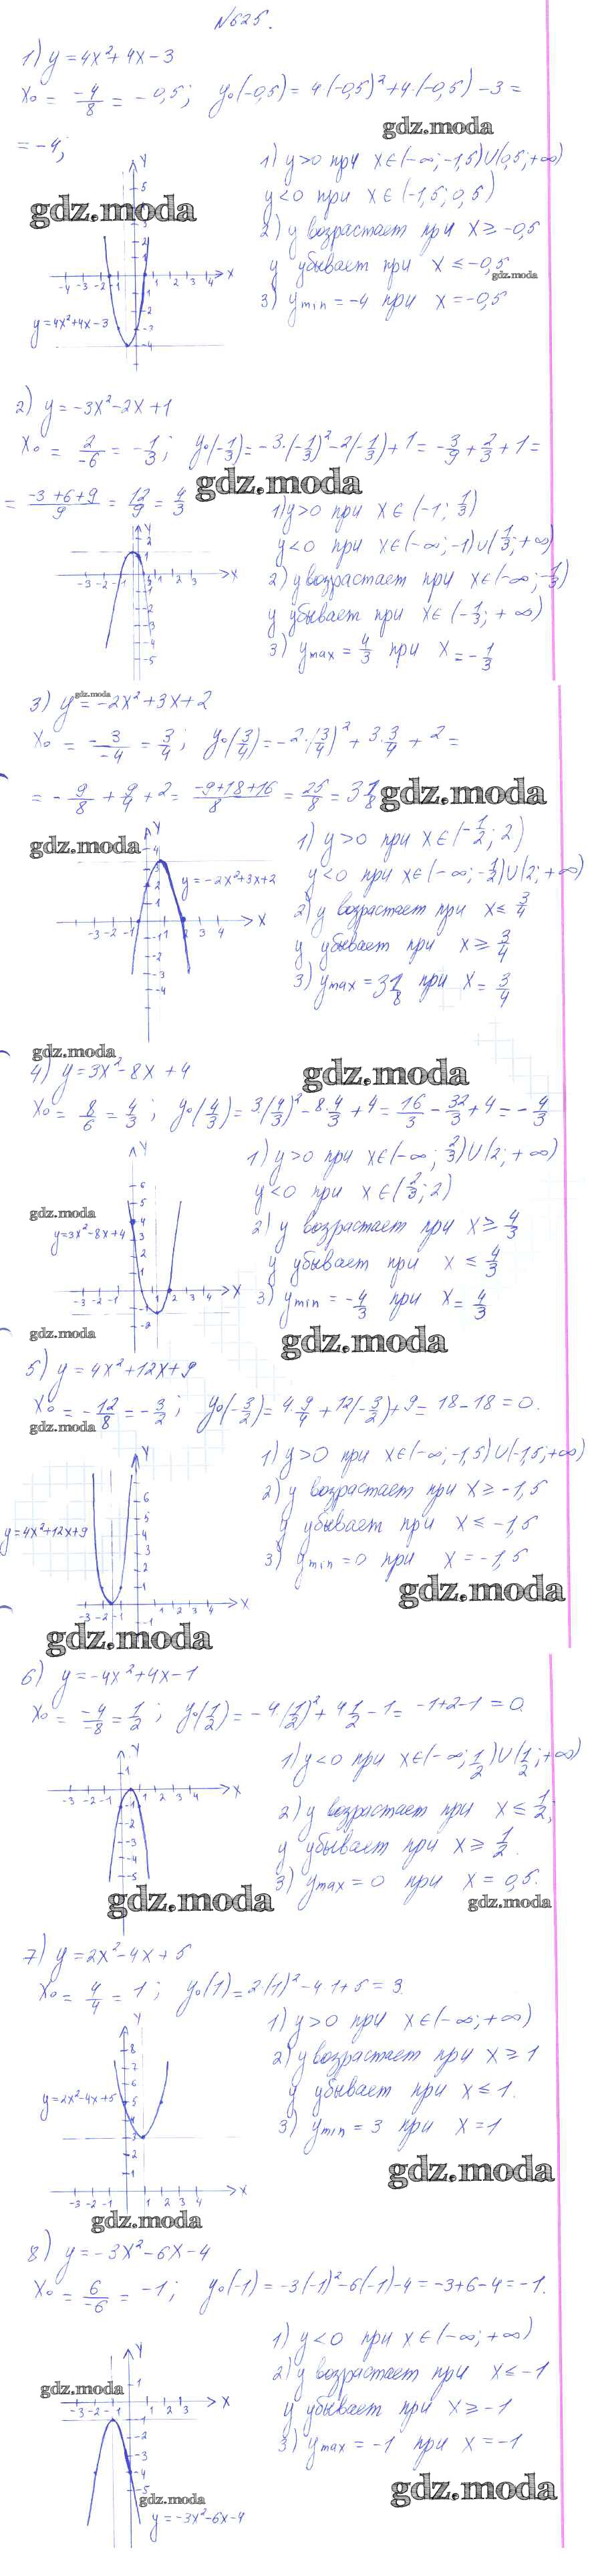 №625.
1) y=4x²+4x-3
x₀ = -4/8 = -0,5; y₀(-0,5) = 4·(-0,5)²+4·(-0,5)-3 =
gdz.moda
= -4;
1) y>0 при x∈(-∞;-1,5)∪(0,5;+∞)
y<0 при x∈(-1,5;0,5)
gdz.moda
2) y возрастает при x≥-0,5
y убывает при x≤-0,5
gdz.moda
3) ymin=-4 при x=-0,5
y=4x²+4x-3
2) y=-3x²-2x+1
x₀ = 2/-6 = -1/3; y₀(-1/3)=-3·(-1/3)²-2(-1/3)+1=-3/9+2/3+1=
gdz.moda
= (-3+6+9)/9 = 12/9 = 4/3
1) y>0 при x∈(-1;1/3)
y<0 при x∈(-∞;-1)∪(1/3;+∞)
2) y возрастает при x∈(-∞;-1/3)
y убывает при x∈(-1/3;+∞)
3) ymax=4/3 при x=-1/3
gdz.moda
3) y=-2x²+3x+2
x₀ = -3/-4 = 3/4; y₀(3/4)=-2·(3/4)²+3·3/4+2=
= -9/8+9/4+2=(-9+18+16)/8=25/8=3 1/8
gdz.moda
gdz.moda
1) y>0 при x∈(-1/2;2)
y<0 при x∈(-∞;-1/2)∪(2;+∞)
y=-2x²+3x+2
2) y возрастает при x≤3/4
y убывает при x≥3/4
3) ymax=3 1/8 при x=3/4
gdz.moda
gdz.moda
4) y=3x²-8x+4
x₀=8/6=4/3; y₀(4/3)=3(4/3)²-8·4/3+4=16/3-32/3+4=-4/3
1) y>0 при x∈(-∞;2/3)∪(2;+∞)
y<0 при x∈(2/3;2)
gdz.moda
y=3x²-8x+4
2) y возрастает при x≥4/3
y убывает при x≤4/3
3) ymin=-4/3 при x=4/3
gdz.moda
gdz.moda
5) y=4x²+12x+9
x₀=-12/8=-3/2; y₀(-3/2)=4·9/4+12(-3/2)+9=18-18=0.
gdz.moda
1) y>0 при x∈(-∞;-1,5)∪(-1,5;+∞)
2) y возрастает при x≥-1,5
y=4x²+12x+9
y убывает при x≤-1,5
3) ymin=0 при x=-1,5
gdz.moda
gdz.moda
6) y=-4x²+4x-1
x₀=-4/-8=1/2; y₀(1/2)=-4(1/2)²+4 1/2-1=-1+2-1=0.
1) y<0 при x∈(-∞;1/2)∪(1/2;+∞)
2) y возрастает при x≤1/2;
y убывает при x≥1/2.
3) ymax=0 при x=0,5.
gdz.moda
gdz.moda
7) y=2x²-4x+5
x₀=4/4=1; y₀(1)=2·(1)²-4·1+5=3.
1) y>0 при x∈(-∞;+∞)
2) y возрастает при x≥1
y=2x²-4x+5
y убывает при x≤1.
3) ymin=3 при x=1
gdz.moda
gdz.moda
8) y=-3x²-6x-4
x₀=6/-6=-1; y₀(-1)=-3(-1)²-6(-1)-4=-3+6-4=-1.
1) y<0 при x∈(-∞;+∞)
gdz.moda
2) y возрастает при x≤-1
y убывает при x≥-1
3) ymax=-1 при x=-1
gdz.moda
gdz.moda
y=-3x²-6x-4